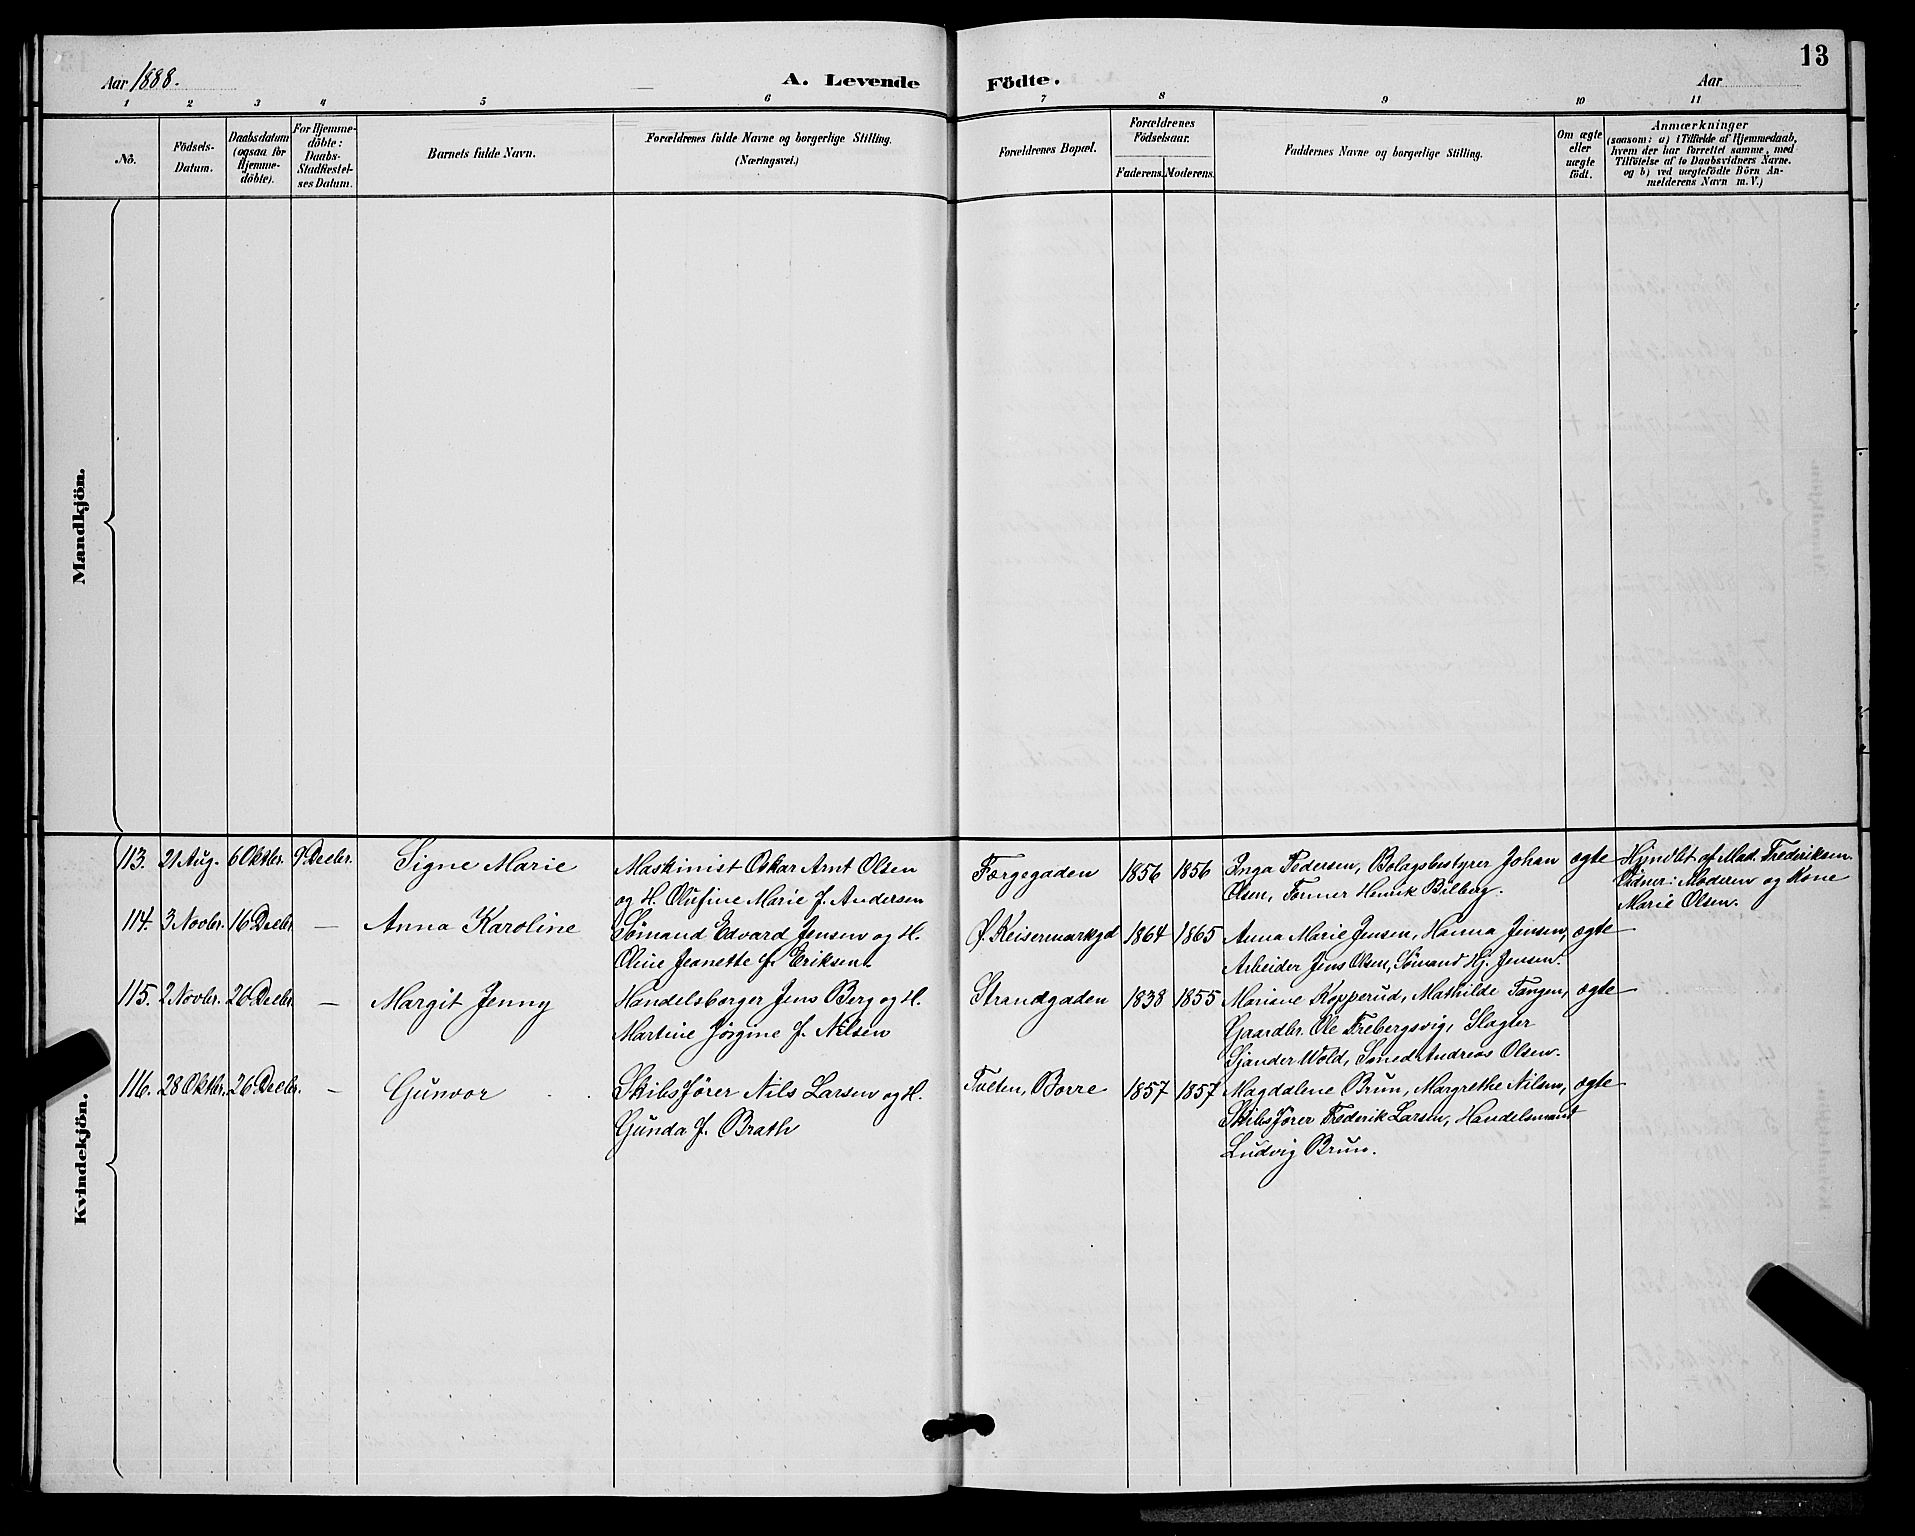 Aar 1888.
A. Levende Födte.
Aar
13
1 2 3 4 5 6 7 8 9 10 11
No.
Födsels-
Datum.
Daabsdatum
(ogsaa for
Hjemme-
döbte).
For Hjemme-
döbte:
Daabs-
Stadfæstel-
ses Datum.
Barnets fulde Navn.
Forældrenes fulde Navne og borgerlige Stilling.
(Næringsvei.)
Forældrenes Bopæl.
Forældrenes
Födselsaar.
Faderens. Moderens.
Faddernes Navne og borgerlige Stilling.
Om ægte
eller
uægte
födt.
Anmærkninger
(saasom: a) i Tilfælde af Hjemmedaab,
hvem der har forrettet samme, med
Tilföielse af to Daabsvidners Navne.
og b) ved uægtefödte Börn An-
melderens Navn m. V.)
Mandkjön.
Kvindekjön.
113. 21 Aug. 6 Oktbr. 9 Decbr. Signe Marie
Maskinist Oskar Arnt Olsen
og H. Olufine Marie f. Andersen
Færgegaden 1856 1856
Inga Pedersen, Bolagsbestyrer Johan
Olsen, Tømmer Henrik Bilberg.
ægte
Hjmdbt af Mad. Frederiksen.
Vidner: Moderen og Kone
Marie Olsen.
114. 3 Novbr. 16 Decbr. — Anna Karoline
Sømand Edvard Jensen og H.
Oline Jeanette f. Eriksen
Ø. Keisermarkgd 1864 1865
Anna Marie Jensen, Hanna Jensen,
Arbeider Jens Olsen, Sømand Hj. Jensen.
ægte —
115. 2 Novbr. 26 Decbr. — Margit Jenny
Handelsborger Jens Berg og H.
Martine Jørgine f. Nilsen
Strandgaden 1838 1855
Mariane Kopperud, Mathilde Tangen,
Gaardbr. Ole Frebergsvig, Slagter
Sjander Wold, Smed Andreas Olsen.
ægte —
116. 28 Oktbr. 26 Decbr. — Gunvor
Skibsfører Nils Larsen og H.
Gunda f. Brath
Tveten, Borre 1857 1857
Magdalene Brun, Margrethe Nilsen,
Skibsfører Frederik Larsen, Handelsmand
Ludvig Brun.
ægte —